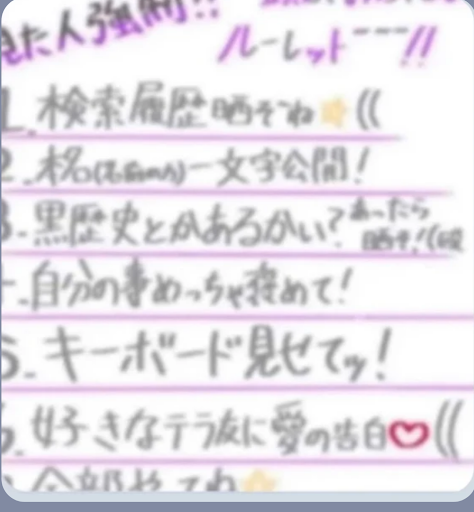 見た人強制!!
ルーレット---!!
1.検索履歴晒そうね⭐((
2.本名(名前のみ)一文字公開!
3.黒歴史とかあるかい?あったら
晒そ!(殴
-.自分の事めっちゃ褒めて!
5.キーボード見せてッ!
6.好きなテラ友に愛の告白♡((
全部やってね⭐